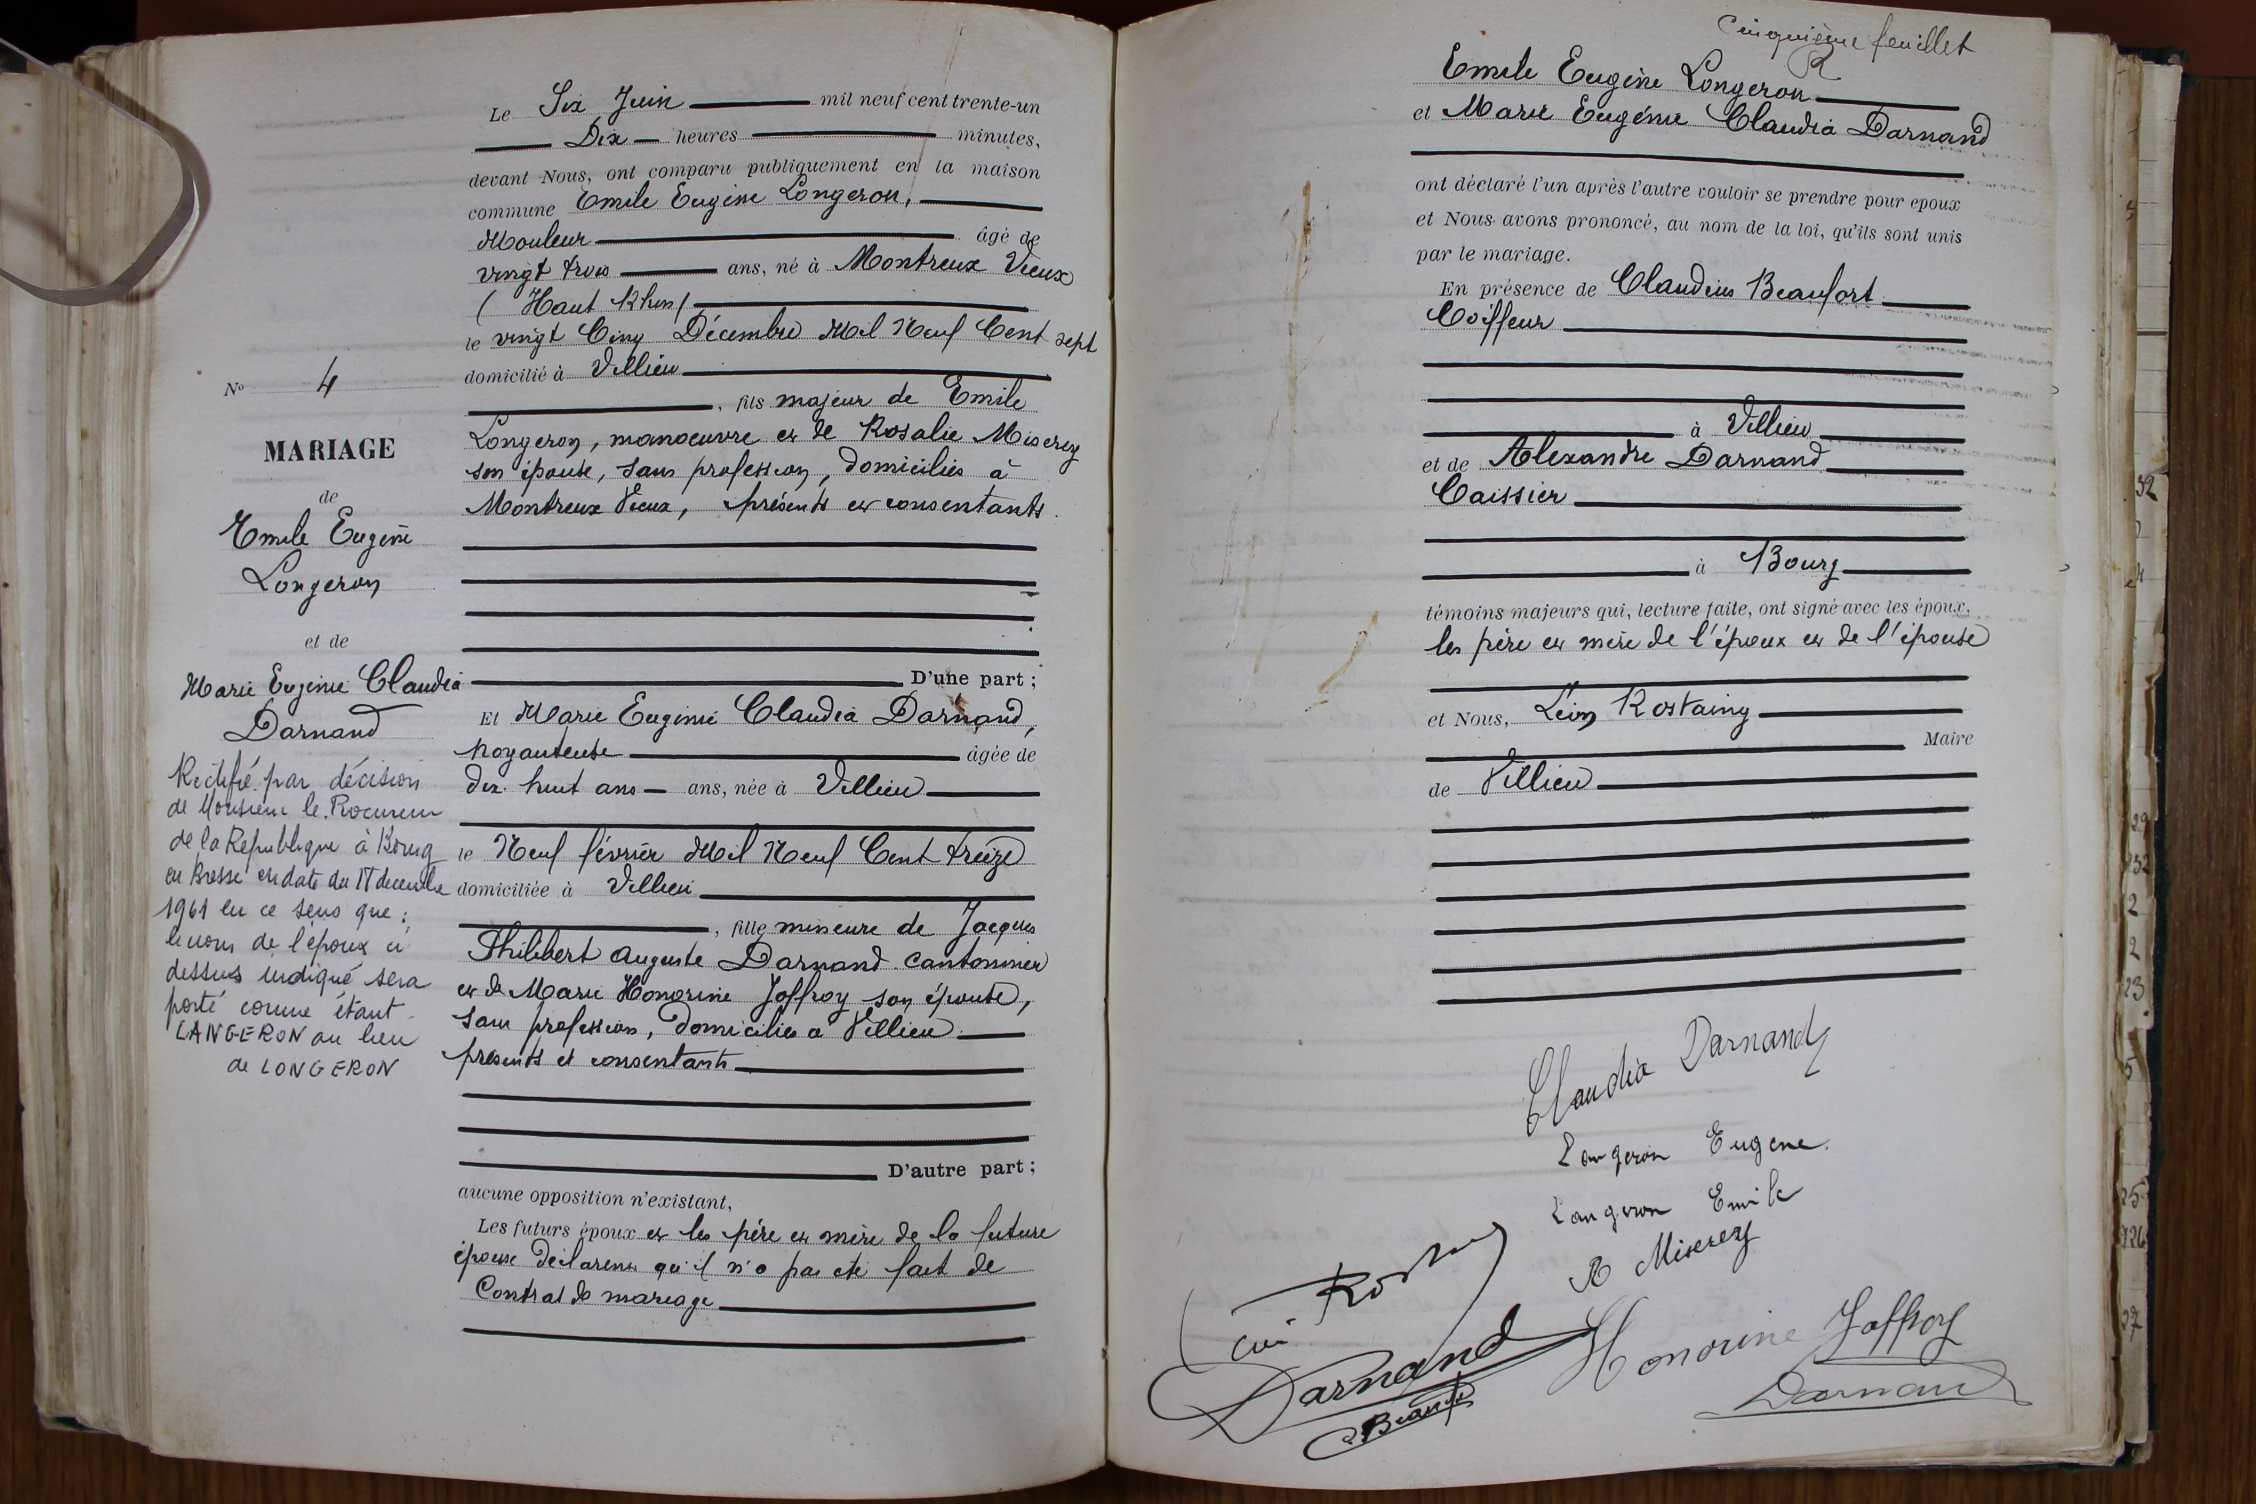 Le Six Juin mil neuf cent trente-un
Dix heures minutes,
devant Nous, ont comparu publiquement en la maison
commune Emile Eugène Longeron,
Mouleur âgé de
vingt trois ans, né à Montreux Vieux
(Haut Rhin)
le vingt Cinq Décembre Mil Neuf Cent sept
domicilié à Villieu
, fils majeur de Emile
Longeron, manoeuvre et de Rosalie Miserez
son épouse, sans profession, domiciliés à
Montreux Vieux, présents et consentants.
D'une part ;
Et Marie Eugénie Claudia Darnand,
Noyauteuse âgée de
dix huit ans ans, née à Villieu
le Neuf février Mil Neuf Cent treize
domiciliée à Villieu
, fille mineure de Jacques
Philibert Auguste Darnand cantonnier
et de Marie Honorine Joffroy son épouse,
sans profession, domiciliés à Villieu
présents et consentants
D'autre part ;
aucune opposition n'existant,
Les futurs époux et les père et mère de la future
épouse déclarent qu'il n'a pas été fait de
Contrat de mariage
No 4
MARIAGE
de
Emile Eugène
Longeron
et de
Marie Eugénie Claudia
Darnand
Rectifié par décision
de Monsieur le Procureur
de la République à Bourg
en Bresse en date du 17 decembre
1961 en ce sens que :
le nom de l'époux ci
dessus indiqué sera
porté comme étant
LANGERON au lieu
de LONGERON
Cinquième feuillet
R
Emile Eugène Longeron
et Marie Eugénie Claudia Darnand
ont déclaré l'un après l'autre vouloir se prendre pour epoux
et Nous avons prononcé, au nom de la loi, qu'ils sont unis
par le mariage.
En présence de Claudius Beaufort
Coiffeur
à Villieu
et de Alexandre Darnand
Caissier
à Bourg
témoins majeurs qui, lecture faite, ont signé avec les époux,
les père et mère de l'époux et de l'épouse
et Nous, Léon Rostaing
Maire
de Villieu
Claudia Darnand
Langeron Eugene.
Langeron Emile
R Miserez
Darnand
Honorine Joffroy
Darnand